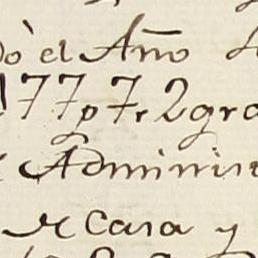 ò el Año
177p 7r 2gra
Adminis
casa y